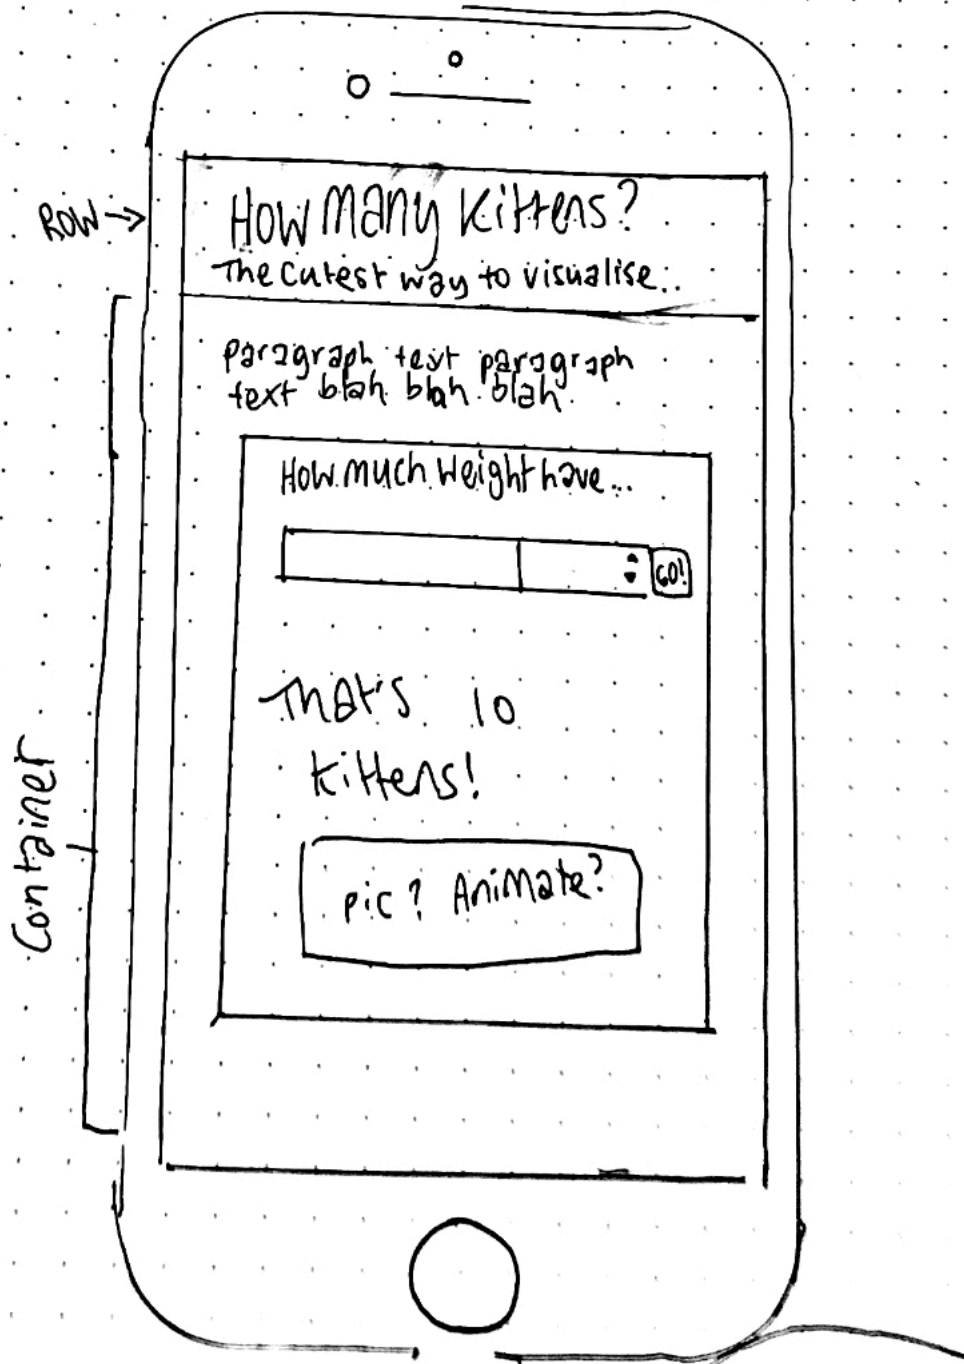 How many Kittens?
Row →
The cutest way to visualise..
paragraph text paragraph
text blah blah blah
How much weight have...
GO!
That's 10
kittens!
pic? Animate?
Container